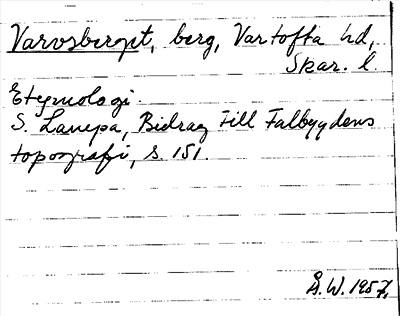 Varvsberget, berg, Vartofta hd,
Skar. l.
Etymologi.
S. Lampa, Bidrag till Falbygdens
topografi, s. 151.
Å.W. 1957.